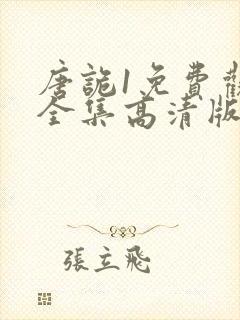 唐詭1免費觀
全集高清版
張立飛